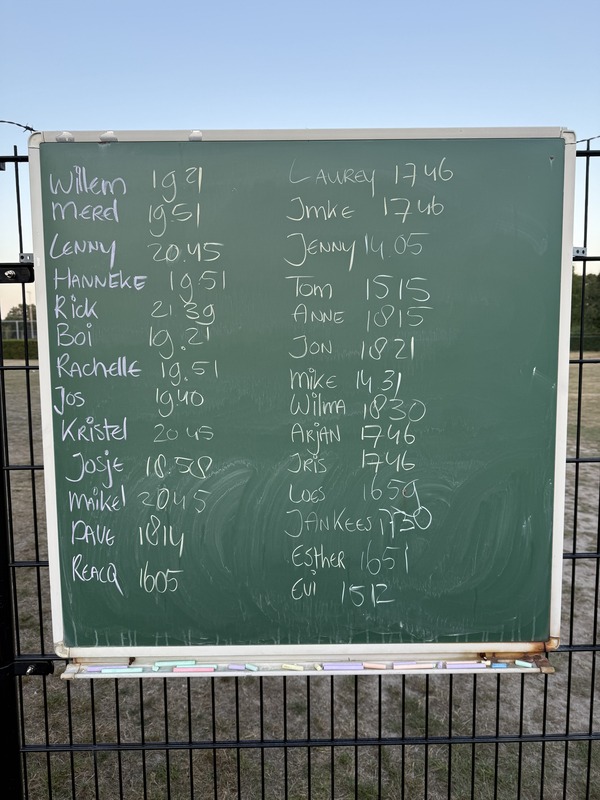 Willem 19 21
Merel 19.51
Lenny 20.45
Hanneke 19.51
Rick 21 39
Boi 19.21
Rachelle 19.51
Jos 1940
Kristel 20 45
Josje 18.58
Maikel 2045
Dave 1814
Reacq 1605
Laurey 1746
Imke 1746
Jenny 14.05
Tom 1515
Anne 1815
Jon 1821
Mike 1431
Wilma 1830
Arjan 1746
Iris 1746
Loes 1659
Jankees 1730
Esther 1651
Evi 1512